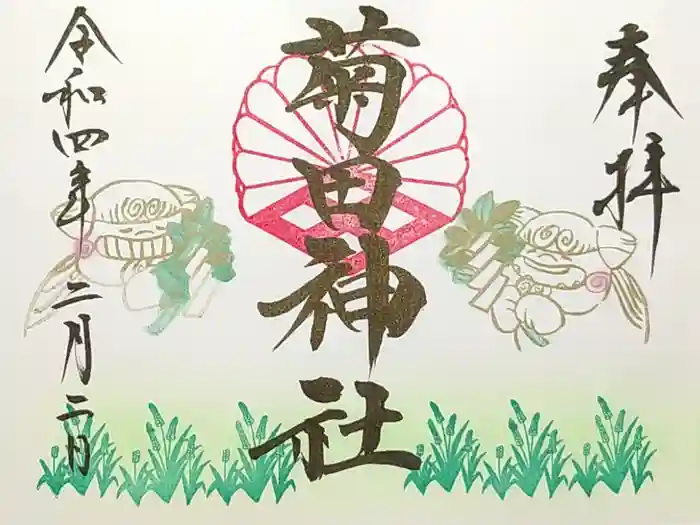 奉拝
菊田神社
令和四年二月二日